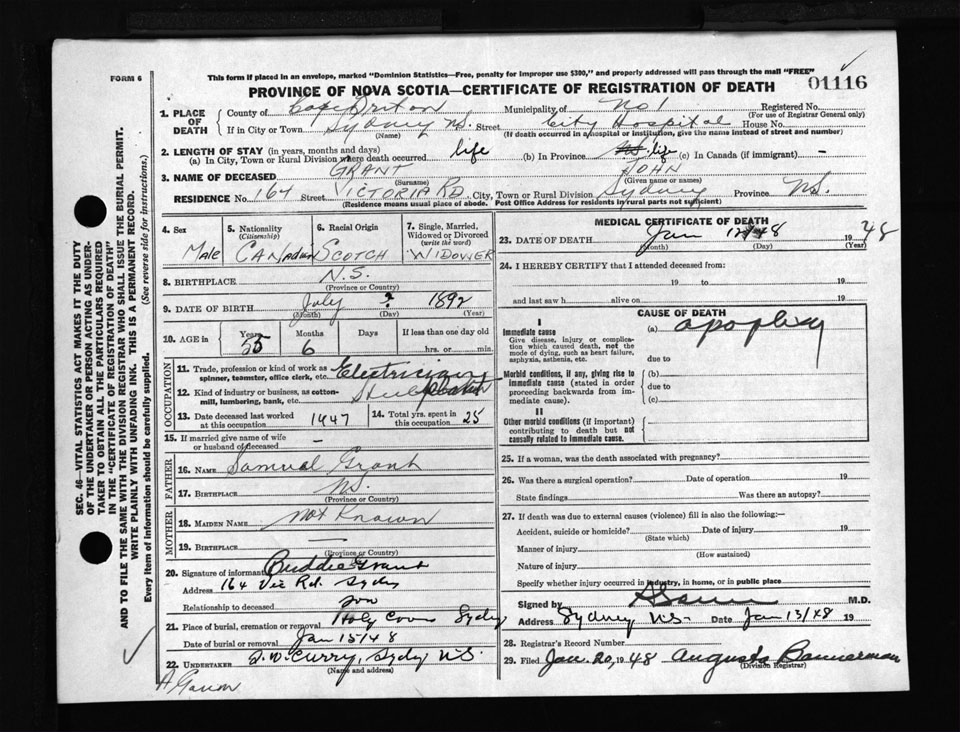 FORM 6
This form if placed in an envelope, marked "Dominion Statistics—Free, penalty for improper use $300," and properly addressed will pass through the mail "FREE"
PROVINCE OF NOVA SCOTIA—CERTIFICATE OF REGISTRATION OF DEATH 01116
1. PLACE OF DEATH
County of Cape Briton Municipality of No 1 Registered No.
(For use of Registrar General only)
If in City or Town Sydney N.S. Street City Hospital House No.
(Name) (If death occurred in a hospital or institution, give the name instead of street and number)
2. LENGTH OF STAY (in years, months and days)
(a) In City, Town or Rural Division where death occurred life (b) In Province N.S. life (c) In Canada (if immigrant) -
3. NAME OF DECEASED GRANT JOHN
(Surname) (Given name or names)
RESIDENCE No 164 Street VICTORIA RD. City, Town or Rural Division Sydney Province N.S.
(Residence means usual place of abode. Post Office Address for residents in rural parts not sufficient)
4. Sex
Male
5. Nationality
(Citizenship)
CANadian
6. Racial Origin
SCOTCH
7. Single, Married, Widowed or Divorced
(write the word)
WIDOWER
8. BIRTHPLACE N.S.
(Province or Country)
9. DATE OF BIRTH July ? 1892
(Month) (Day) (Year)
10. AGE in Years Months Days If less than one day old
55 6 hrs. or min.
OCCUPATION
11. Trade, profession or kind of work as Electrician
spinner, teamster, office clerk, etc.
12. Kind of industry or business, as cotton- Steel
mill, lumbering, bank, etc.
13. Date deceased last worked at this occupation 1947
14. Total yrs. spent in this occupation 25
15. If married give name of wife or husband of deceased —
FATHER
16. NAME Samual Grant
17. BIRTHPLACE N.S.
(Province or Country)
MOTHER
18. MAIDEN NAME Not Known
19. BIRTHPLACE —
(Province or Country)
20. Signature of informant Buddie Grant
Address 164 Vic Rd. Sydy
Relationship to deceased son
21. Place of burial, cremation or removal Holy Sydy
Date of burial or removal Jan 15/48
22. UNDERTAKER Curry, Sydy N.S.
(Name and address)
MEDICAL CERTIFICATE OF DEATH
23. DATE OF DEATH Jan 12/48 1948
(Month) (Day) (Year)
24. I HEREBY CERTIFY that I attended deceased from:
19 to 19
and last saw h alive on 19
CAUSE OF DEATH
I
Immediate cause (a) apoplexy
Give disease, injury or complication which caused death, not the mode of dying, such as heart failure, asphyxia, asthenia, etc.
due to
Morbid conditions, if any, giving rise to immediate cause (stated in order proceeding backwards from immediate cause).
(b)
due to
(c)
II
Other morbid conditions (if important) contributing to death but not causally related to immediate cause.
25. If a woman, was the death associated with pregnancy?
26. Was there a surgical operation? Date of operation 19
State findings Was there an autopsy?
27. If death was due to external causes (violence) fill in also the following:—
Accident, suicide or homicide? Date of injury 19
(State which)
Manner of injury
(How sustained)
Nature of injury
Specify whether injury occurred in industry, in home, or in public place
Signed by M.D.
Address Sydney N.S. Date Jan 13/48 19
28. Registrar's Record Number
29. Filed Jan. 20, 1948 Augusta Bannerman
(Division Registrar)
SEC. 46—VITAL STATISTICS ACT MAKES IT THE DUTY
OF THE UNDERTAKER OR PERSON ACTING AS UNDER-
TAKER TO OBTAIN ALL THE PARTICULARS REQUIRED
IN THE "CERTIFICATE OF REGISTRATION OF DEATH"
AND TO FILE THE SAME WITH THE DIVISION REGISTRAR WHO SHALL ISSUE THE BURIAL PERMIT.
WRITE PLAINLY WITH UNFADING INK. THIS IS A PERMANENT RECORD.
Every item of information should be carefully supplied. (See reverse side for instructions.)